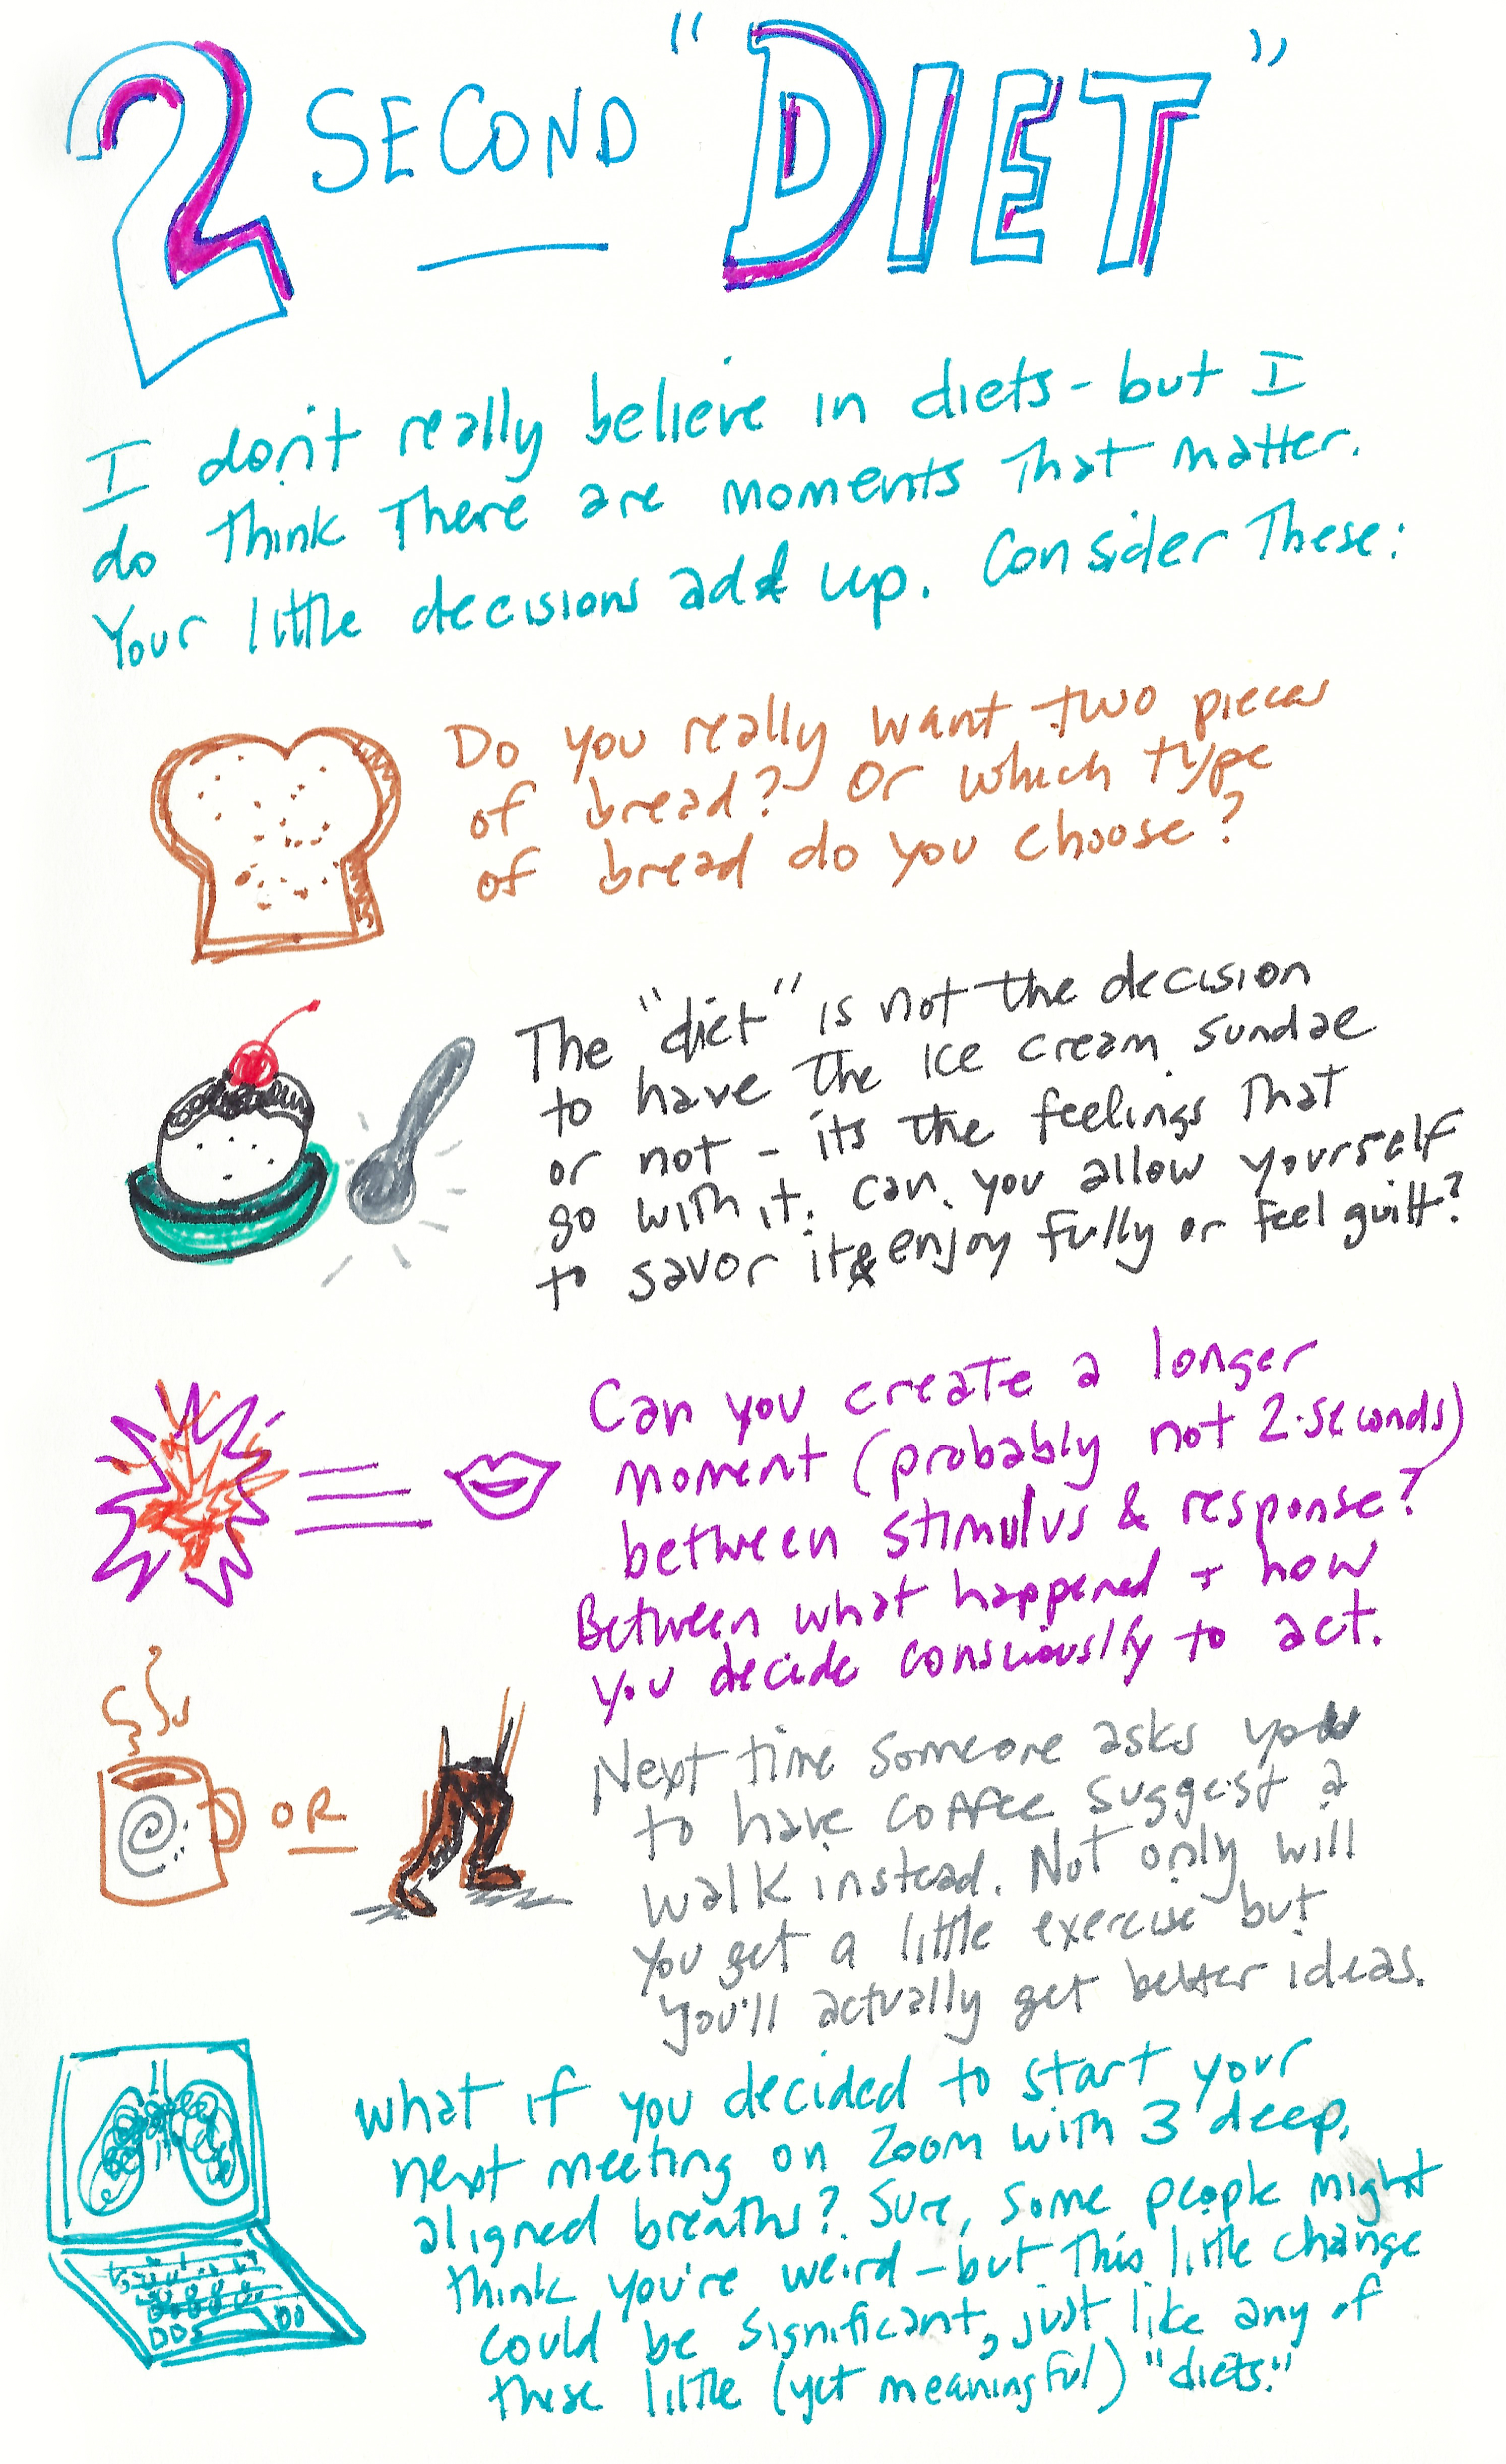 2 SECOND "DIET"
I don't really believe in diets - but I
do think there are moments that matter.
Your little decisions add up. Consider these:
Do you really want two pieces
of bread? Or which type
of bread do you choose?
The "diet" is not the decision
to have the ice cream sundae
or not - its the feelings that
go with it. Can you allow yourself
to savor it & enjoy fully or feel guilt?
Can you create a longer
moment (probably not 2-seconds)
between stimulus & response?
Between what happened + how
you decide consciously to act.
OR
Next time someone asks you
to have coffee suggest a
walk instead. Not only will
you get a little exercise but
you'll actually get better ideas.
What if you decided to start your
next meeting on Zoom with 3 deep,
aligned breaths? Sure, some people might
think you're weird - but this little change
could be significant, just like any of
these little (yet meaningful) "diets."